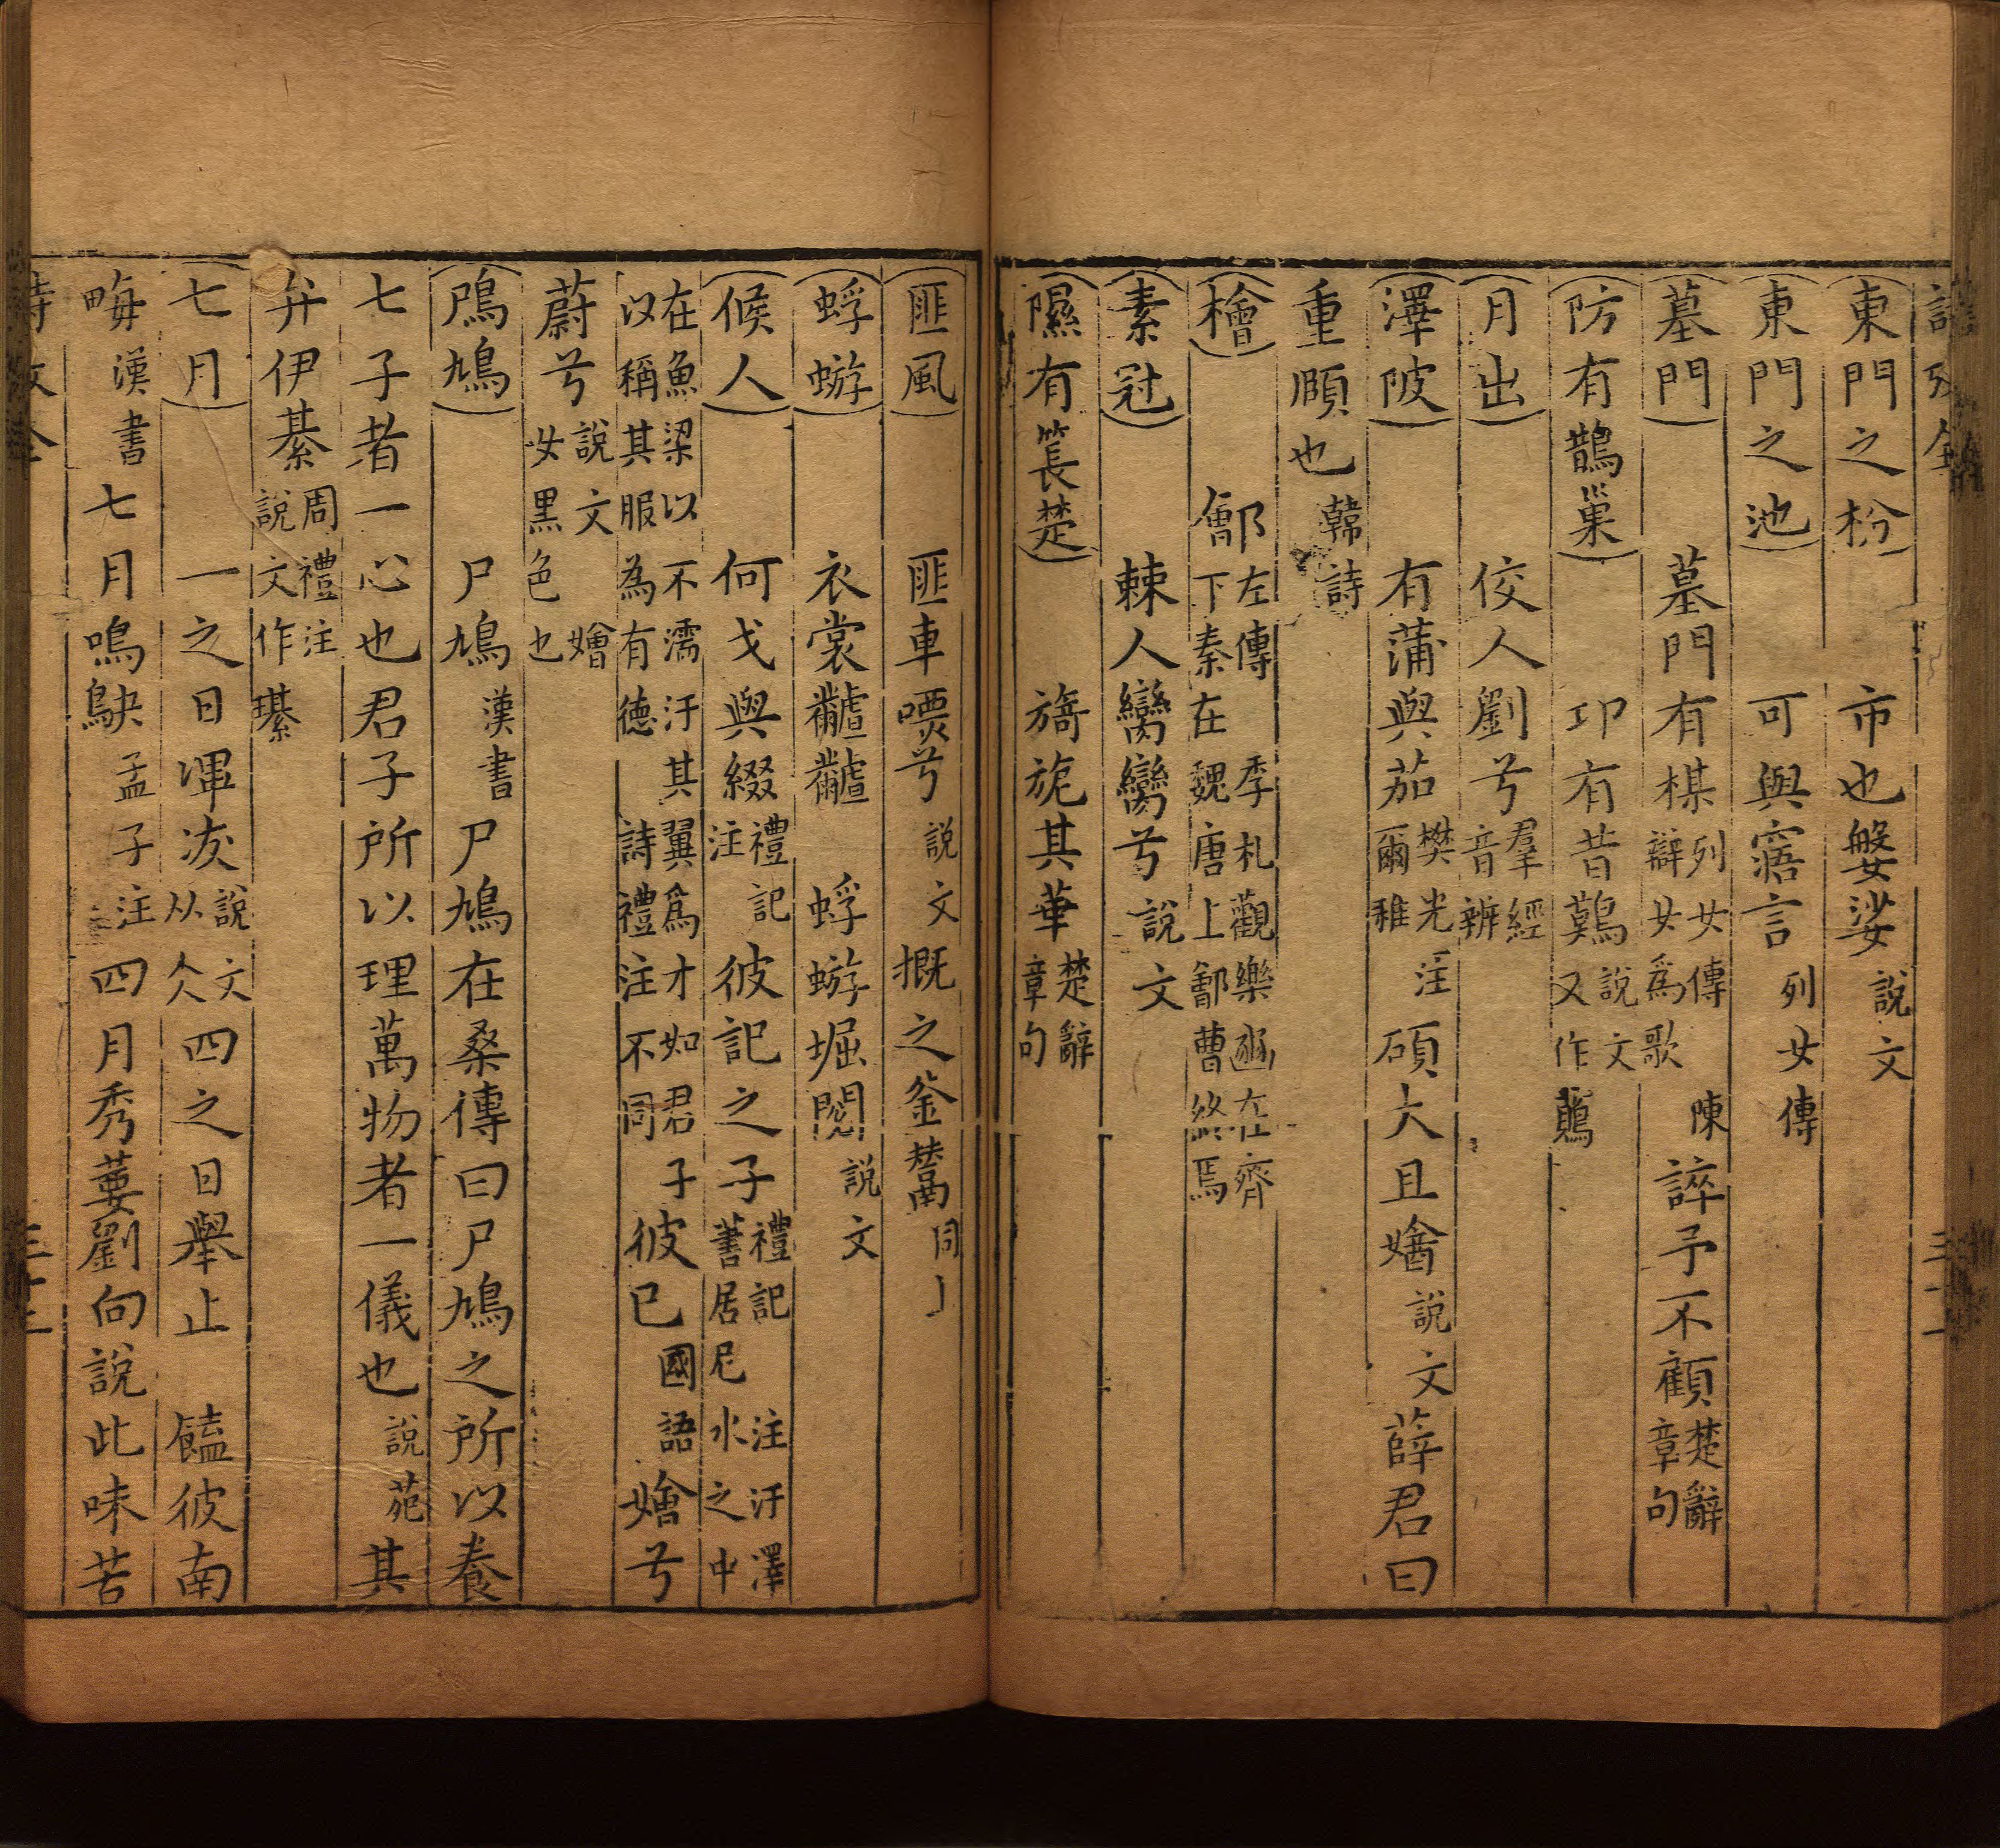 東門之枌　市也媻娑說文
東門之池　可與寤言列女傳
墓門　墓門有楳列女傳陳辯女為歌　誶予不顧楚辭章句
防有鵲巢　卭有旨鷏說文又作鷏
月出　佼人劉兮羣經音辨
澤陂　有蒲與茄樊光注爾雅　碩大且㜝說文　薛君曰
重頤也韓詩
檜　鄶左傳季札觀樂豳在齊下秦在魏唐上鄶曹終焉
素冠　棘人臠臠兮說文
隰有萇楚　旖旎其華楚辭章句
匪風　匪車嘌兮說文　摡之釜鬵同上
蜉蝣　衣裳䊝䊝　蜉蝣堀閱說文
候人　何戈與綴禮記注　彼記之子禮記注汙澤善居泥水之中
在魚梁以不濡汙其翼為才如君子以稱其服為有德　詩禮注不同　彼己國語　嬒兮
蔚兮說文嬒女黑色也
鳲鳩　尸鳩漢書　尸鳩在桑傳曰尸鳩之所以養
七子者一心也君子所以理萬物者一儀也說苑　其
弁伊綦周禮注說文作㻽
七月　一之日滭冹說文从仌　四之日舉止　饁彼南
畮漢書　七月鳴鴃孟子注　四月秀葽劉向說此味苦